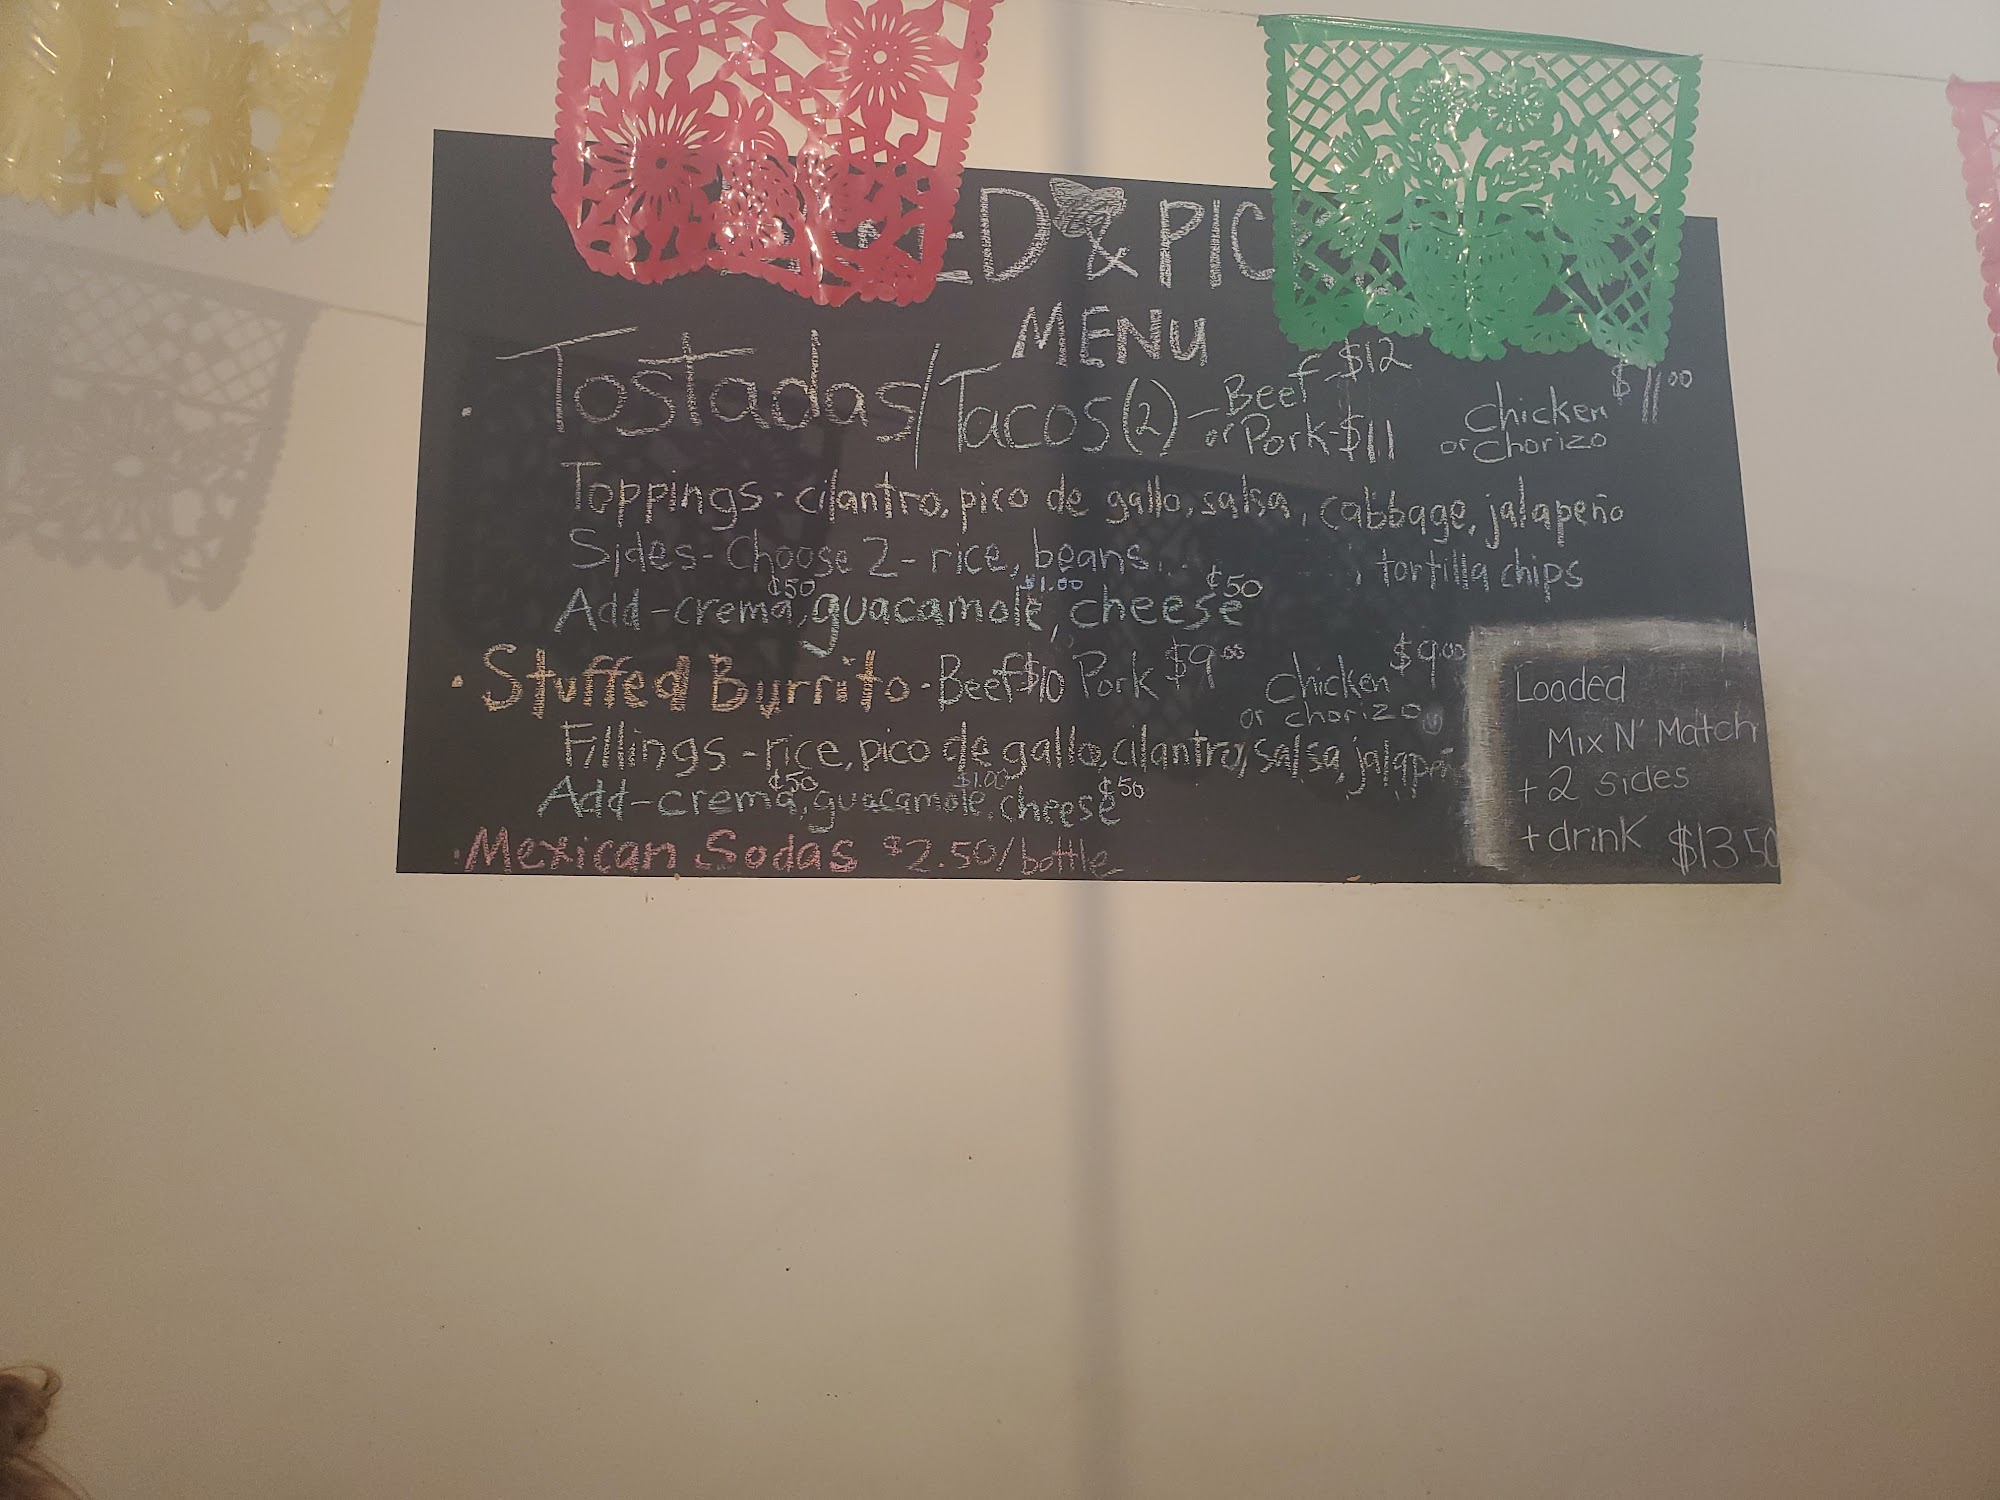 & PIC
MENU
· Tostadas/Tacos (2) - Beef - $12
or Pork - $11
Chicken or Chorizo $11 00
Toppings · cilantro, pico de gallo, salsa, cabbage, jalapeño
Sides - Choose 2 - rice, beans, tortilla chips
Add - crema ¢50, guacamole $1.00, cheese ¢50
· Stuffed Burrito - Beef $10 Pork $9 00 Chicken or chorizo $9 00
Fillings - rice, pico de gallo, cilantro, salsa, jalapeñ
Add - crema ¢50, guacamole $1.00, cheese ¢50
· Mexican Sodas $2.50/bottle
Loaded
Mix N' Match
+ 2 sides
+ drink $13 50